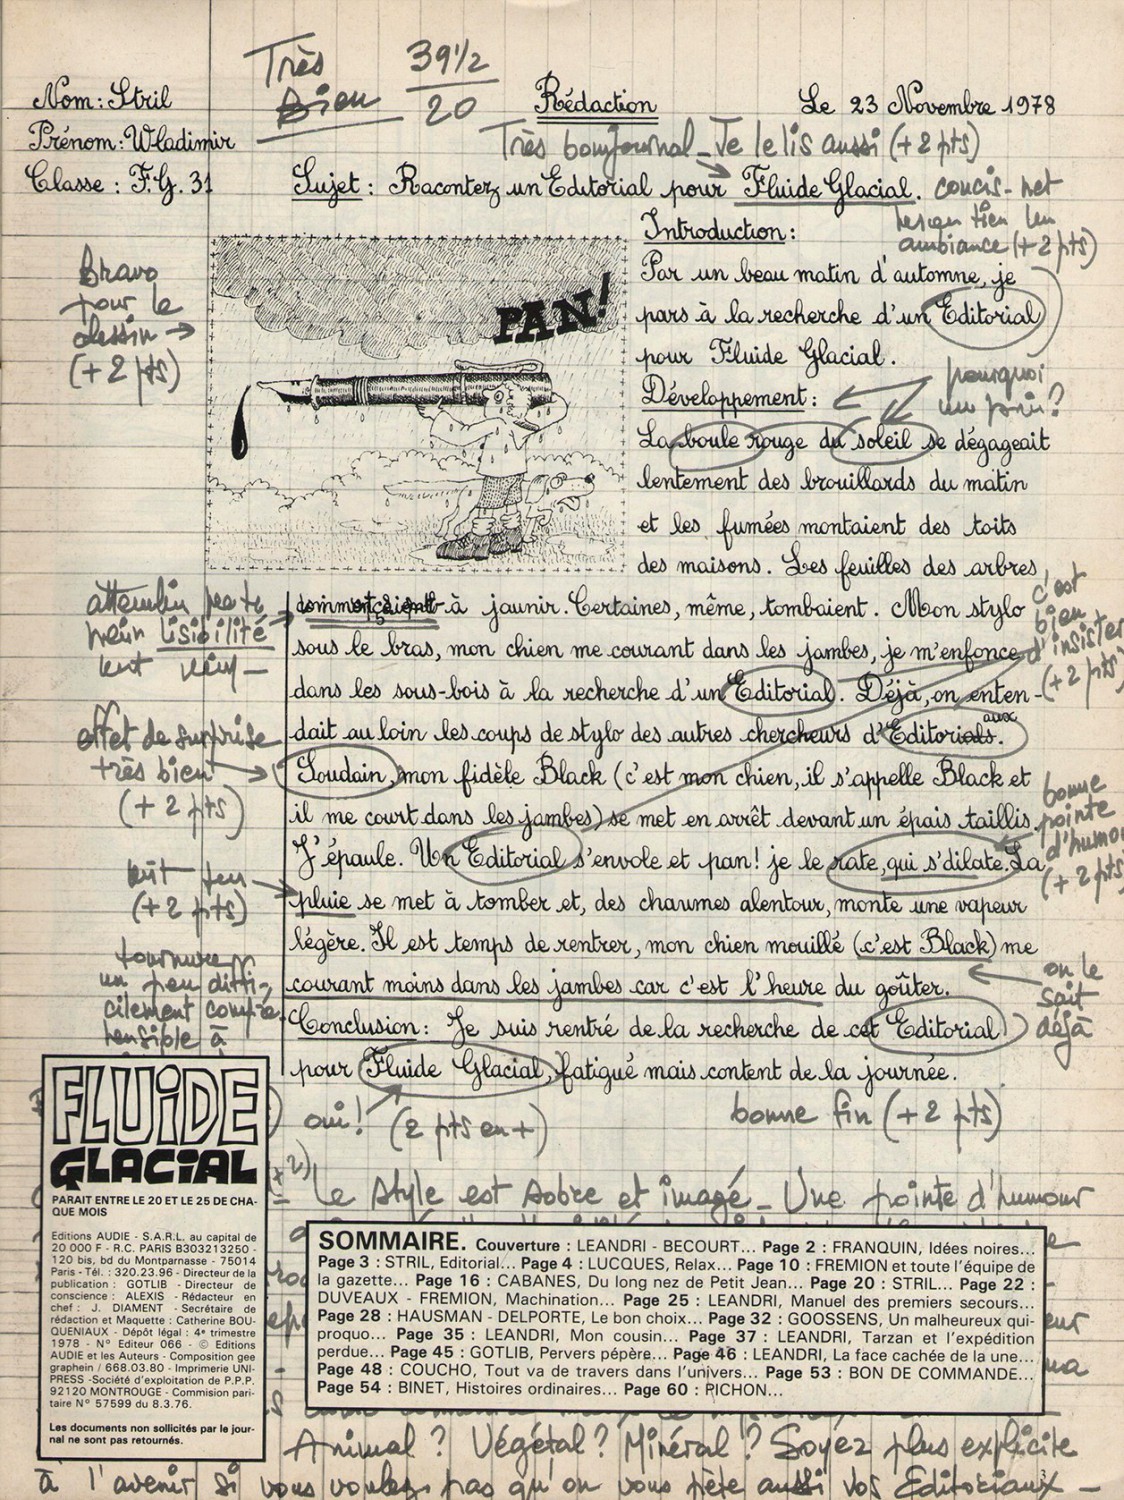 Très
Bien
39 1/2
20
Nom : Stril
Prénom : Wladimir
Classe : F.G. 31
Rédaction
Le 23 Novembre 1978
Très bon journal _ Je le lis aussi (+ 2 pts)
Sujet : Racontez un Editorial pour Fluide Glacial.
concis - net
ambiance (+ 2 pts)
bravo
pour le
dessin →
(+ 2 pts)
PAN!
Introduction :
Par un beau matin d'automne, je
pars à la recherche d'un Editorial
pour Fluide Glacial.
pourquoi
Développement :
La boule rouge du soleil se dégageait
lentement des brouillards du matin
et les fumées montaient des toits
des maisons. Les feuilles des arbres
commençaient à jaunir. Certaines, même, tombaient. Mon stylo
sous le bras, mon chien me courant dans les jambes, je m'enfonce
dans les sous-bois à la recherche d'un Editorial. Déjà, on enten-
dait au loin les coups de stylo des autres chercheurs d'Editorials.
aux
Soudain, mon fidèle Black (c'est mon chien, il s'appelle Black et
il me court dans les jambes) se met en arrêt devant un épais taillis.
J'épaule. Un Editorial s'envole et pan! je le rate, qui s'dilate. La
pluie se met à tomber et, des chaumes alentour, monte une vapeur
légère. Il est temps de rentrer, mon chien mouillé (c'est Black) me
courant moins dans les jambes car c'est l'heure du goûter.
Conclusion : Je suis rentré de la recherche de cet Editorial
pour Fluide Glacial, fatigué mais content de la journée.
lisibilité
c'est
bien
d'insister
(+ 2 pts)
effet de surprise
très bien
(+ 2 pts)
bonne
pointe
d'humo
(+ 2 pts
(+ 2 pts)
tournure
un peu diffi-
cilement compré
hensible à
on le
sait
déjà
oui!
(2 pts en +)
bonne fin (+ 2 pts)
le style est sobre et imagé _ Une pointe d'humour
FLUIDE
GLACIAL
PARAIT ENTRE LE 20 ET LE 25 DE CHA-
QUE MOIS
Editions AUDIE - S.A.R.L. au capital de
20 000 F - R.C. PARIS B303213250 -
120 bis, bd du Montparnasse - 75014
Paris - Tél. : 320.23.96 - Directeur de la
publication : GOTLIB - Directeur de
conscience : ALEXIS - Rédacteur en
chef : J. DIAMENT - Secrétaire de
rédaction et Maquette : Catherine BOU-
QUENIAUX - Dépôt légal : 4e trimestre
1978 - N° Editeur 066 - © Editions
AUDIE et les Auteurs - Composition gee
graphein / 668.03.80 - Imprimerie UNI-
PRESS - Société d'exploitation de P.P.P.
92120 MONTROUGE - Commision pari-
taire N° 57599 du 8.3.76.
Les documents non sollicités par le jour-
nal ne sont pas retournés.
SOMMAIRE. Couverture : LEANDRI - BECOURT... Page 2 : FRANQUIN, Idées noires...
Page 3 : STRIL, Editorial... Page 4 : LUCQUES, Relax... Page 10 : FREMION et toute l'équipe de
la gazette... Page 16 : CABANES, Du long nez de Petit Jean... Page 20 : STRIL... Page 22 :
DUVEAUX - FREMION, Machination... Page 25 : LEANDRI, Manuel des premiers secours...
Page 28 : HAUSMAN - DELPORTE, Le bon choix... Page 32 : GOOSSENS, Un malheureux qui-
proquo... Page 35 : LEANDRI, Mon cousin... Page 37 : LEANDRI, Tarzan et l'expédition
perdue... Page 45 : GOTLIB, Pervers pépère... Page 46 : LEANDRI, La face cachée de la une...
Page 48 : COUCHO, Tout va de travers dans l'univers... Page 53 : BON DE COMMANDE...
Page 54 : BINET, Histoires ordinaires... Page 60 : PICHON...
Animal ? Végétal ? Minéral ? Soyez plus explicite
à l'avenir si vous voulez pas qu'on vous pète aussi vos Editoriaux _